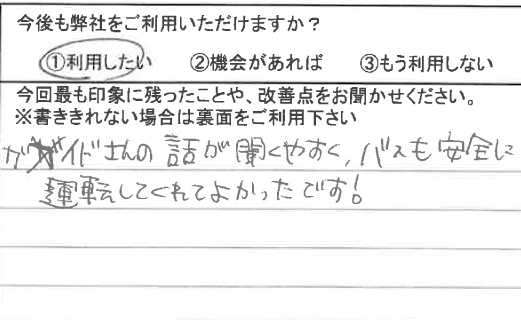 今後も弊社をご利用いただけますか？
①利用したい ②機会があれば ③もう利用しない
今回最も印象に残ったことや、改善点をお聞かせください。
※書ききれない場合は裏面をご利用下さい
ガイドさんの話が聞くやすく、バスも安全に
運転してくれてよかったです!